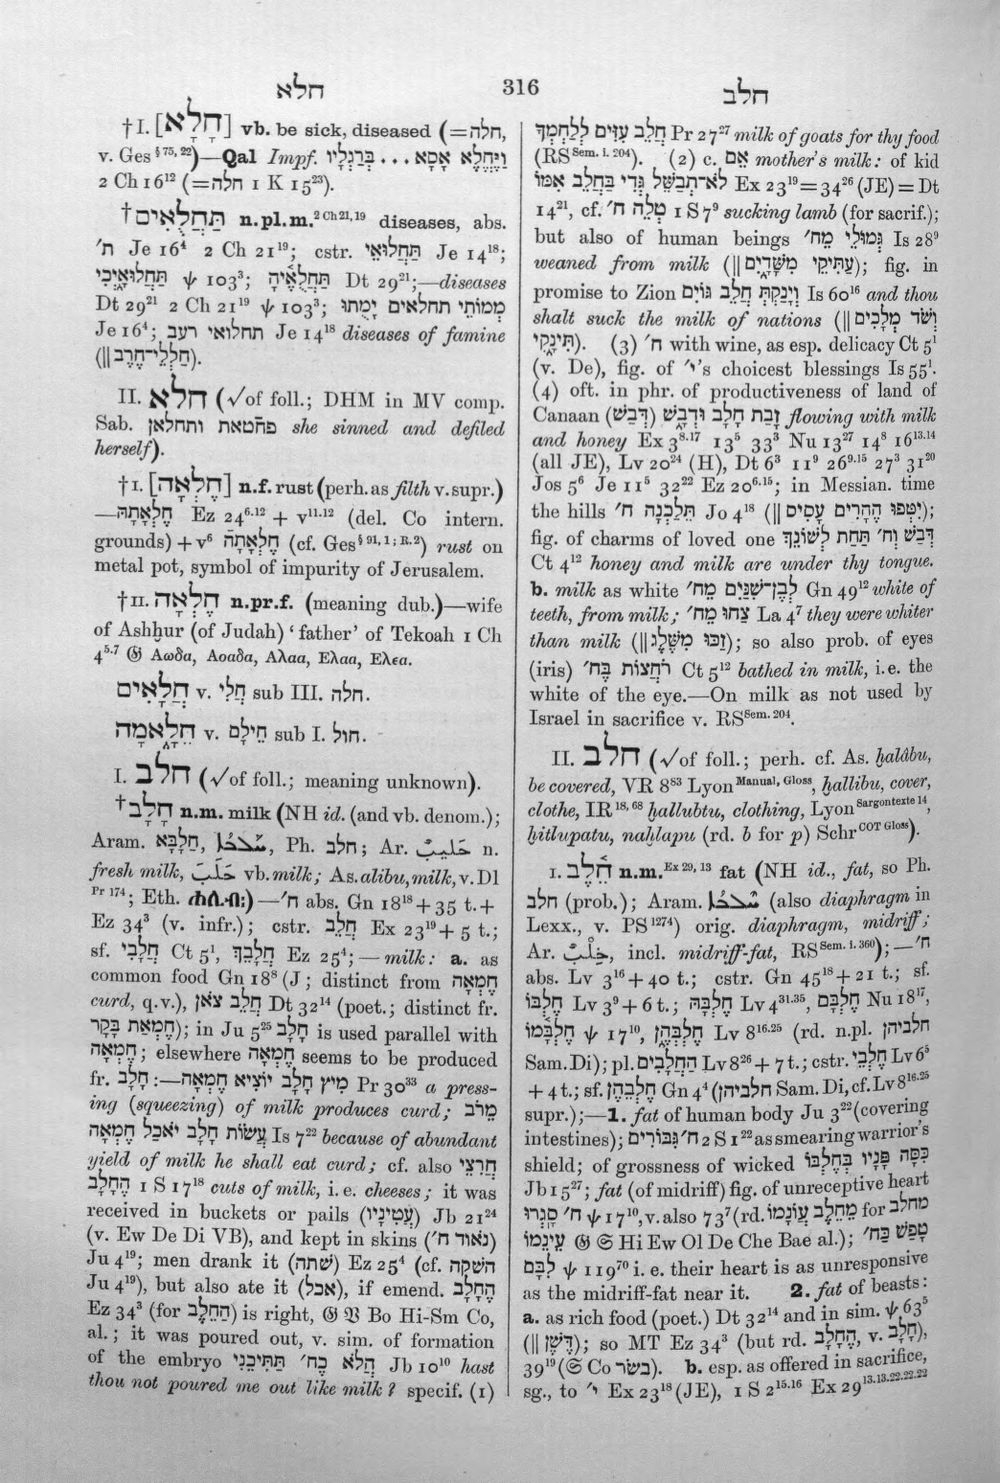 חלא
316
חלב
†I. [חָלָא] vb. be sick, diseased (=חלה,
v. Ges § 75, 22)—Qal Impf. וַיֶּחֱלֶא אָסָא ... בְּרַגְלָיו
2 Ch 16¹² (=חלה 1 K 15²³).
†תַּחֲלֻאִים n.pl.m. 2 Ch 21, 19 diseases, abs.
ת׳ Je 16⁴ 2 Ch 21¹⁹; cstr. תַּחֲלוּאֵי Je 14¹⁸;
תַּחֲלוּאָ֑יְכִי ψ 103³; תַּחֲלֻאֶ֫יהָ Dt 29²¹;—diseases
Dt 29²¹ 2 Ch 21¹⁹ ψ 103³; מְמוֹתֵי תחלאים יָמֻתוּ
Je 16⁴; תחלואי רעב Je 14¹⁸ diseases of famine
(‖ חַלְלֵי־חֶרֶב).
II. חלא (√of foll.; DHM in MV comp.
Sab. she sinned and defiled
herself).
†I. [חֶלְאָה] n.f. rust (perh. as filth v. supr.)
—חֶלְאָתָהּ Ez 24⁶·¹² + v¹¹·¹² (del. Co intern.
grounds) + v⁶ חֶלְאָתָה (cf. Ges § 91, 1; R. 2) rust on
metal pot, symbol of impurity of Jerusalem.
†II. חֶלְאָה n.pr.f. (meaning dub.)—wife
of Ashḥur (of Judah) ‘father’ of Tekoah 1 Ch
4⁵·⁷ 𝔊 Αωδα, Αοαδα, Αλαα, Ελαα, Ελεα.
חֲלָאִים v. חֲלִי sub III. חלה.
חֵלָאמָה v. חֵילָם sub I. חול.
I. חלב (√of foll.; meaning unknown).
†חָלָב n.m. milk (NH id. (and vb. denom.);
Aram. חַלְבָּא, Ph. חלב; Ar. حَلِيبٌ n.
fresh milk, حَلَبَ vb. milk; As. alibu, milk, v. Dl
Pr 174; Eth. ሐሊብ፡)—ח׳ abs. Gn 18¹⁸ + 35 t. +
Ez 34³ (v. infr.); cstr. חֲלֵב Ex 23¹⁹ + 5 t.;
sf. חֲלָבִי Ct 5¹, חֲלָבֵךְ Ez 25⁴;—milk: a. as
common food Gn 18⁸ (J; distinct from חֶמְאָה
curd, q.v.), חֲלֵב צֹאן Dt 32¹⁴ (poet.; distinct fr.
חֶמְאַת בָּקָר); in Ju 5²⁵ חָלָב is used parallel with
חֶמְאָה; elsewhere חֶמְאָה seems to be produced
fr. חָלָב:—מִיץ חָלָב יוֹצִיא חֶמְאָה Pr 30³³ a press-
ing (squeezing) of milk produces curd; מֵרֹב
עֲשׂוֹת חָלָב יֹאכַל חֶמְאָה Is 7²² because of abundant
yield of milk he shall eat curd; cf. also חֲרִצֵי
הֶחָלָב 1 S 17¹⁸ cuts of milk, i.e. cheeses; it was
received in buckets or pails (עֲטִינָיו) Jb 21²⁴
(v. Ew De Di VB), and kept in skins (נֹאוד ח׳)
Ju 4¹⁹; men drank it (שׁתה) Ez 25⁴ (cf. השׁקה
Ju 4¹⁹), but also ate it (אכל), if emend. הֶחָלָב
Ez 34³ (for הַחֵלֶב) is right, 𝔊 𝔙 Bo Hi-Sm Co,
al.; it was poured out, v. sim. of formation
of the embryo הֲלֹא כֶח׳ תַּתִּיכֵנִי Jb 10¹⁰ hast
thou not poured me out like milk? specif. (1)
חֲלֵב עִזִּים לְלַחְמְךָ Pr 27²⁷ milk of goats for thy food
(RS Sem. i. 204). (2) c. אֵם mother's milk: of kid
לֹא־תְבַשֵּׁל גְּדִי בַּחֲלֵב אִמּוֹ Ex 23¹⁹=34²⁶ (JE)=Dt
14²¹, cf. טְלֵה ח׳ 1 S 7⁹ sucking lamb (for sacrif.);
but also of human beings גְּמוּלֵי מֵח׳ Is 28⁹
weaned from milk (‖ עַתִּיקֵי מִשָּׁדָ֑יִם); fig. in
promise to Zion וְיָנַקְתְּ חֲלֵב גּוֹיִם Is 60¹⁶ and thou
shalt suck the milk of nations (‖ וְשֹׁד מְלָכִים
תִּינָ֑קִי). (3) ח׳ with wine, as esp. delicacy Ct 5¹
(v. De), fig. of י׳'s choicest blessings Is 55¹.
(4) oft. in phr. of productiveness of land of
Canaan זָבַת חָלָב וּדְבָשׁ (דְּבַשׁ) flowing with milk
and honey Ex 3⁸·¹⁷ 13⁵ 33³ Nu 13²⁷ 14⁸ 16¹³·¹⁴
(all JE), Lv 20²⁴ (H), Dt 6³ 11⁹ 26⁹·¹⁵ 27³ 31²⁰
Jos 5⁶ Je 11⁵ 32²² Ez 20⁶·¹⁵; in Messian. time
the hills תֵּלַכְנָה ח׳ Jo 4¹⁸ (‖ יִטְּפוּ הֶהָרִים עָסִיס);
fig. of charms of loved one דְּבַשׁ וְח׳ תַּחַת לְשׁוֹנֵךְ
Ct 4¹² honey and milk are under thy tongue.
b. milk as white לְבֶן־שִׁנַּיִם מֵח׳ Gn 49¹² white of
teeth, from milk; צַחוּ מֵח׳ La 4⁷ they were whiter
than milk (‖ זַכּוּ מִשֶּׁלֶג); so also prob. of eyes
(iris) רֹחֲצוֹת בֶּח׳ Ct 5¹² bathed in milk, i.e. the
white of the eye.—On milk as not used by
Israel in sacrifice v. RS Sem. 204.
II. חלב (√of foll.; perh. cf. As. ḫalâbu,
be covered, VR 8⁸³ Lyon Manual, Gloss, ḫallibu, cover,
clothe, IR 18, 68 ḫallubtu, clothing, Lyon Sargontexte 14,
ḫitlupatu, naḫlapu (rd. b for p) Schr COT Gloss).
I. חֵ֫לֶב n.m. Ex 29, 13 fat (NH id., fat, so Ph.
חלב (prob.); Aram. (also diaphragm in
Lexx., v. PS 1274) orig. diaphragm, midriff;
Ar. خِلْبٌ, incl. midriff-fat, RS Sem. i. 360);—ח׳
abs. Lv 3¹⁶ + 40 t.; cstr. Gn 45¹⁸ + 21 t.; sf.
חֶלְבּוֹ Lv 3⁹ + 6 t.; חֶלְבָּהּ Lv 4³¹·³⁵, חֶלְבָּם Nu 18¹⁷,
חֶלְבָּ֫מוֹ ψ 17¹⁰, חֶלְבְּהֶ֑ן Lv 8¹⁶·²⁵ (rd. n.pl. חלביהן
Sam. Di); pl. הַחֲלָבִים Lv 8²⁶ + 7 t.; cstr. חֶלְבֵי Lv 6⁵
+ 4 t.; sf. חֶלְבֵהֶן Gn 4⁴ (חלביהן Sam. Di, cf. Lv 8¹⁶·²⁵
supr.);—1. fat of human body Ju 3²² (covering
intestines); ח׳ גִּבּוֹרִים 2 S 1²² as smearing warrior's
shield; of grossness of wicked כִּסָּה פָנָיו בְּחֶלְבּוֹ
Jb 15²⁷; fat (of midriff) fig. of unreceptive heart
ח׳ סָֽגְרוּ ψ 17¹⁰, v. also 73⁷ (rd. מֵחֵלֶב עֲוֹנָמוֹ for מחלב
עֵינֵמוֹ 𝔊 𝔖 Hi Ew Ol De Che Bae al.); טָפַשׁ כַּח׳
לִבָּם ψ 119⁷⁰ i.e. their heart is as unresponsive
as the midriff-fat near it. 2. fat of beasts:
a. as rich food (poet.) Dt 32¹⁴ and in sim. ψ 63⁵
(‖ דֶּשֶׁן); so MT Ez 34³ (but rd. הֶחָלָב, v. חָלָב),
39¹⁹ (𝔖 Co בשׂר). b. esp. as offered in sacrifice,
sg., to י׳ Ex 23¹⁸ (JE), 1 S 2¹⁵·¹⁶ Ex 29¹³·¹³·²²·²²·²²